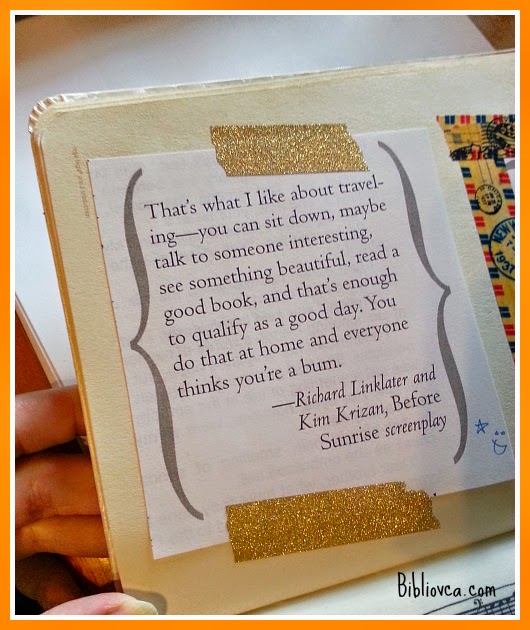 That's what I like about travel-
ing—you can sit down, maybe
talk to someone interesting,
see something beautiful, read a
good book, and that's enough
to qualify as a good day. You
do that at home and everyone
thinks you're a bum.
—Richard Linklater and
Kim Krizan, Before
Sunrise screenplay
Bibliovca.com